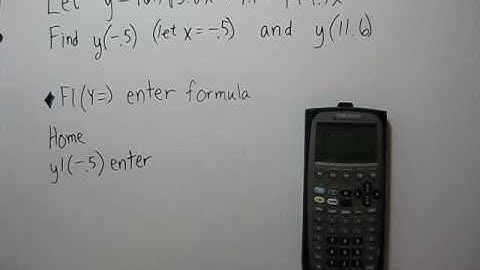 Let y=
Find y(-.5) (let x=-.5) and y(11.6)
♦F1(Y=) enter formula
Home
y1(-.5) enter